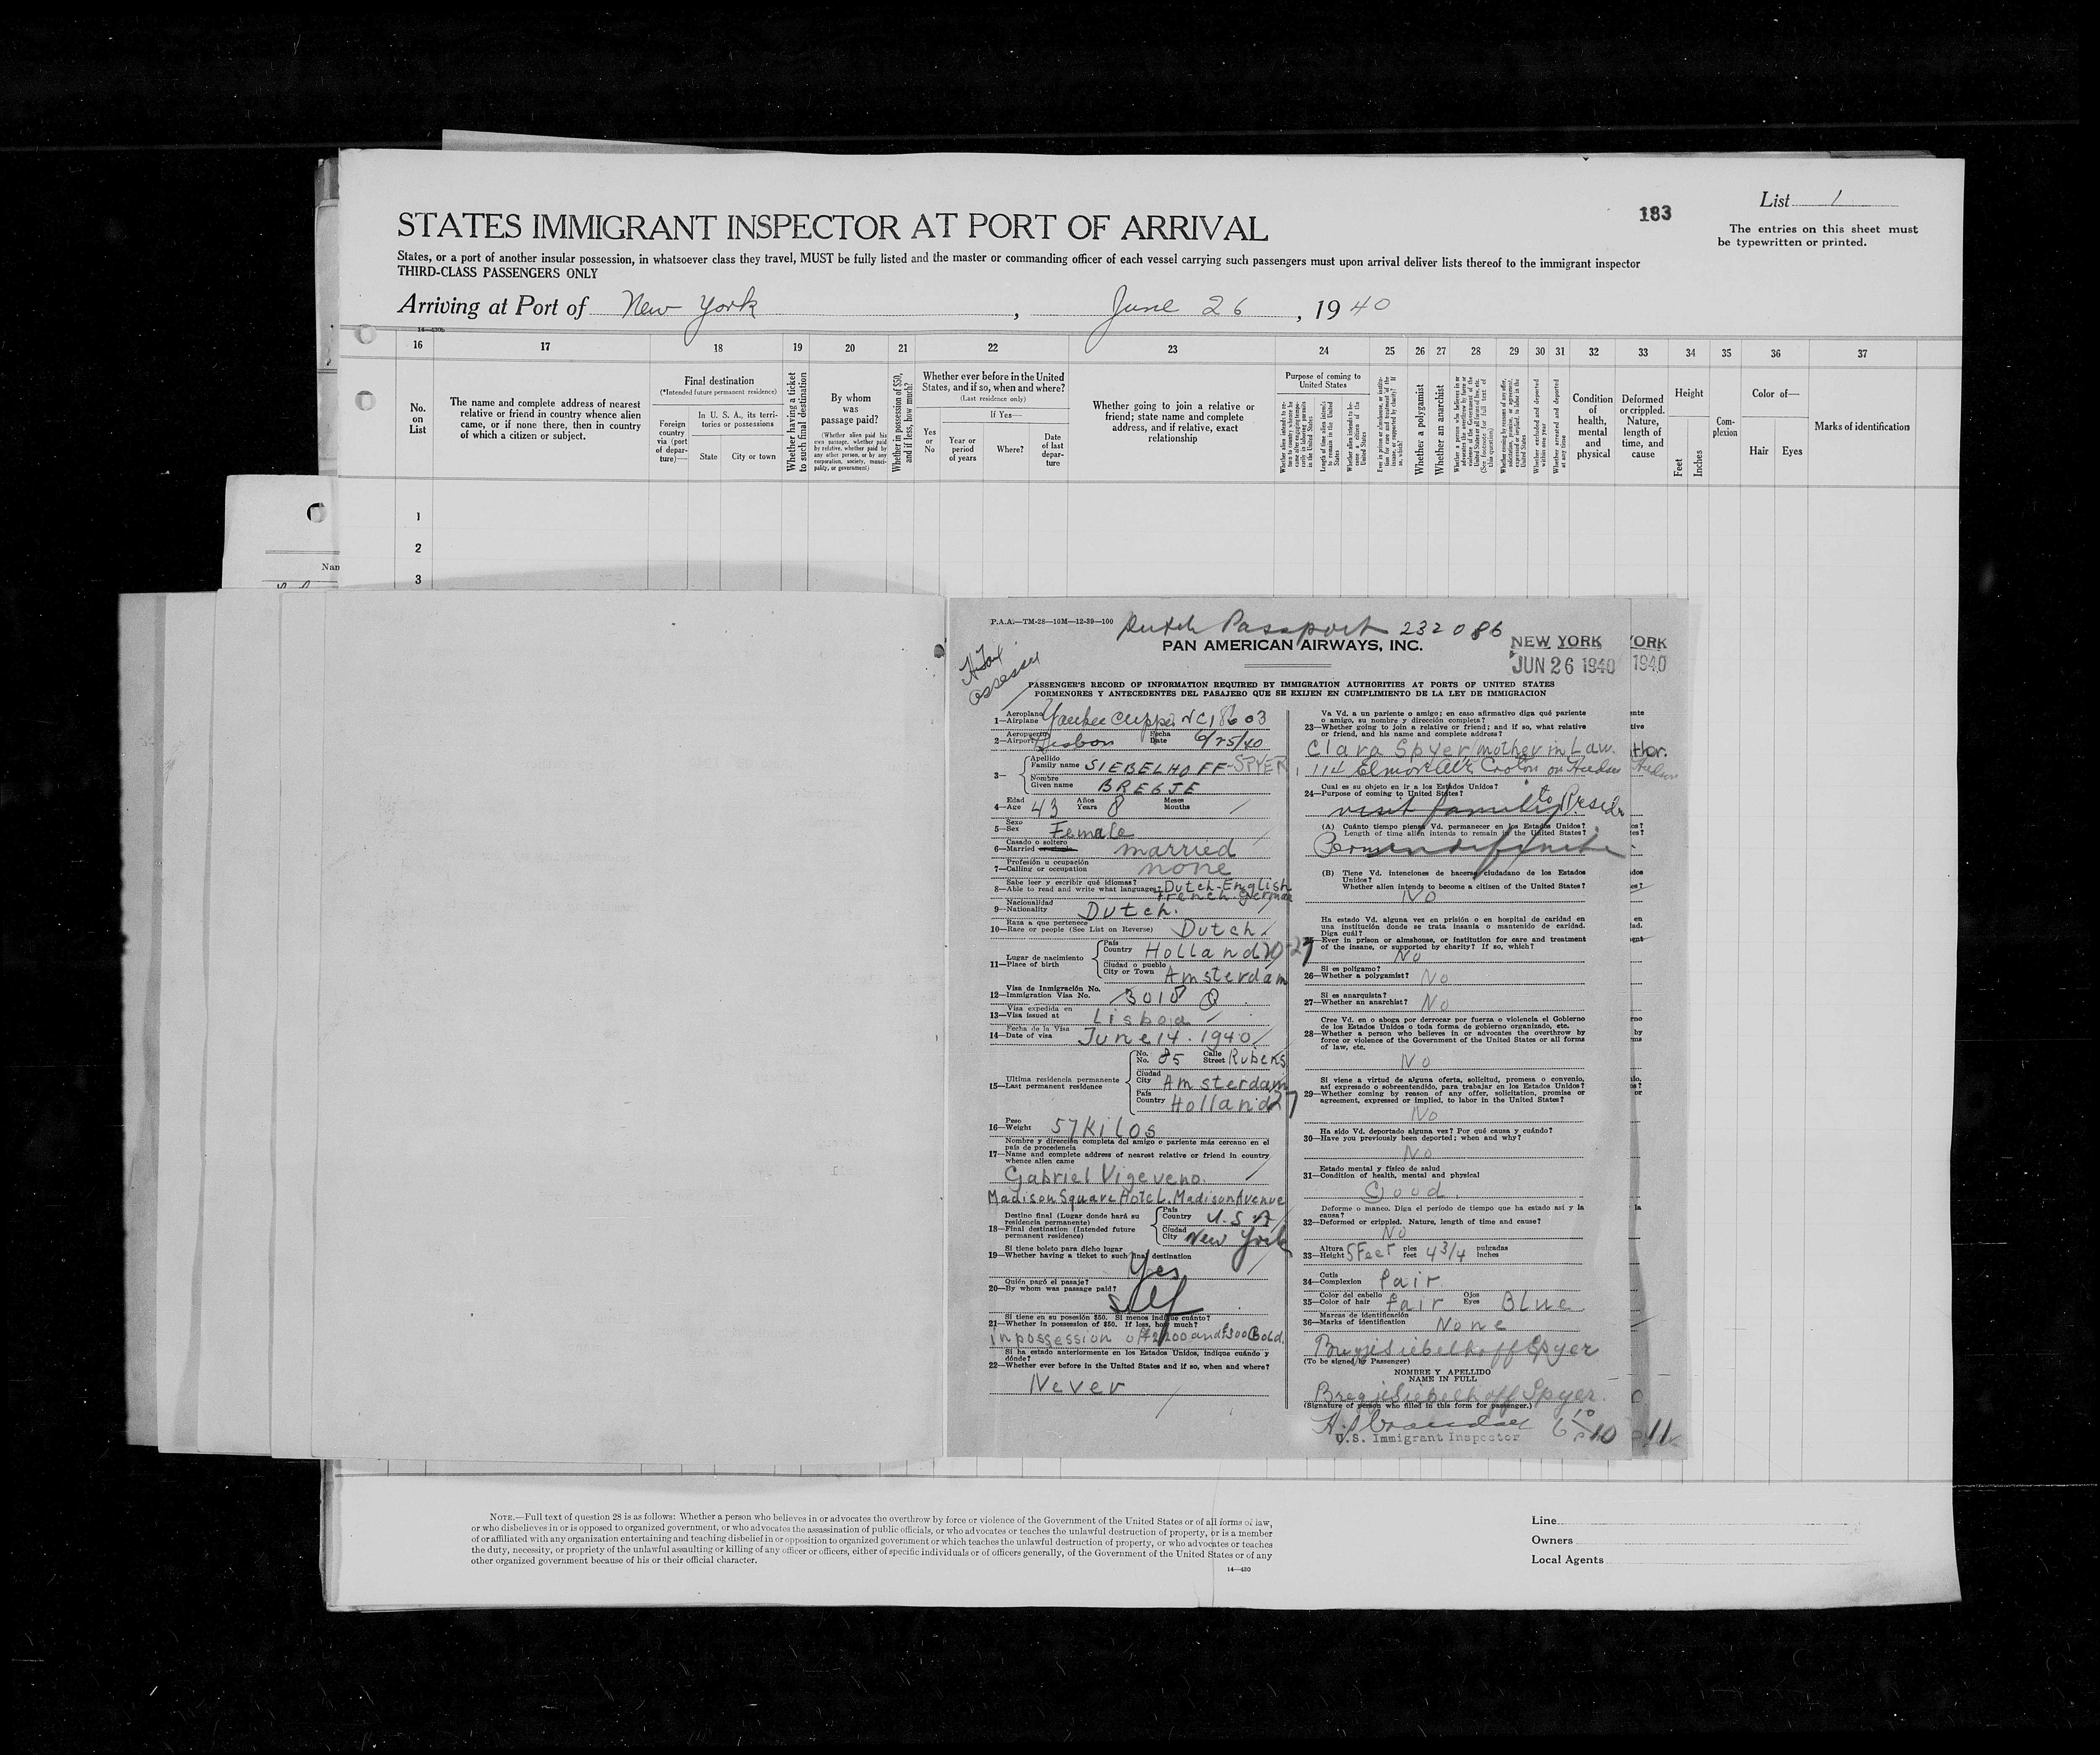 183
List 1
The entries on this sheet must
be typewritten or printed.
STATES IMMIGRANT INSPECTOR AT PORT OF ARRIVAL
States, or a port of another insular possession, in whatsoever class they travel, MUST be fully listed and the master or commanding officer of each vessel carrying such passengers must upon arrival deliver lists thereof to the immigrant inspector
THIRD-CLASS PASSENGERS ONLY
Arriving at Port of New York, June 26, 1940
14—430b
16 17 18 19 20 21 22 23 24 25 26 27 28 29 30 31 32 33 34 35 36 37
No. on List
The name and complete address of nearest
relative or friend in country whence alien
came, or if none there, then in country
of which a citizen or subject.
Final destination
(*Intended future permanent residence)
Foreign country via (port of departure)—
In U. S. A., its territories or possessions
State
City or town
Whether having a ticket to such final destination
By whom was passage paid?
(Whether alien paid his own passage, whether paid by relative, whether paid by any other person, or by any corporation, society, municipality, or government)
Whether in possession of $50, and if less, how much?
Whether ever before in the United
States, and if so, when and where?
(Last residence only)
Yes or No
If Yes—
Year or period of years
Where?
Date of last departure
Whether going to join a relative or
friend; state name and complete
address, and if relative, exact
relationship
Purpose of coming to United States
Whether a polygamist
Whether an anarchist
Condition of health, mental and physical
Deformed or crippled. Nature, length of time, and cause
Height
Feet
Inches
Complexion
Color of—
Hair
Eyes
Marks of identification
1
2
3
Nam
P.A.A.—TM-28—10M—12-39—100
Dutch Passport 232086
PAN AMERICAN AIRWAYS, INC.
NEW YORK
JUN 26 1940
YORK
1940
PASSENGER'S RECORD OF INFORMATION REQUIRED BY IMMIGRATION AUTHORITIES AT PORTS OF UNITED STATES
PORMENORES Y ANTECEDENTES DEL PASAJERO QUE SE EXIJEN EN CUMPLIMIENTO DE LA LEY DE IMMIGRACION
Aeroplano
1—Airplane Yankee Clipper NC18603
Aeropuerto Fecha
2—Airport Lisbon Date 6/25/40
3— Apellido
Family name SIEBELHOFF-SPYER
Nombre
Given name BREGJE
Edad Años Meses
4—Age 43 Years 8 Months
Sexo
5—Sex Female
Casado o soltero
6—Married married
Profesión u ocupación
7—Calling or occupation none
Sabe leer y escribir qué idiomas?
8—Able to read and write what languages? Dutch-English
French-German
Nacionalidad
9—Nationality Dutch.
Raza a que pertenece
10—Race or people (See List on Reverse) Dutch
Lugar de nacimiento
11—Place of birth
País
Country Holland
Ciudad o pueblo
City or Town Amsterdam
Visa de Inmigración No.
12—Immigration Visa No. 3018 Q
Visa expedida en
13—Visa issued at Lisboa
Fecha de la Visa
14—Date of visa June 14. 1940
Ultima residencia permanente
15—Last permanent residence
No. Calle
No. 85 Street Rubens
Ciudad
City Amsterdam
País
Country Holland 27
Peso
16—Weight 57 Kilos
Nombre y dirección completa del amigo o pariente más cercano en el
país de procedencia
17—Name and complete address of nearest relative or friend in country
whence alien came
Gabriel Vigeveno.
Madison Square Hotel. Madison Avenue
Destino final (Lugar donde hará su
residencia permanente)
18—Final destination (Intended future
permanent residence)
País
Country U.S.A
Ciudad
City New York
Si tiene boleto para dicho lugar
19—Whether having a ticket to such final destination
Yes
Quién pagó el pasaje?
20—By whom was passage paid?
self
Si tiene en su posesión $50. Si menos indique cuánto?
21—Whether in possession of $50. If less, how much?
in possession of
Si ha estado anteriormente en los Estados Unidos, indique cuándo y
dónde?
22—Whether ever before in the United States and if so, when and where?
Never
Va Vd. a un pariente o amigo; en caso afirmativo diga qué pariente
o amigo, su nombre y dirección completa?
23—Whether going to join a relative or friend; and if so, what relative
or friend, and his name and complete address?
Clara Spyer/mother in Law.
114 Elmore Ave Croton on Hudson
Cual es su objeto en ir a los Estados Unidos?
24—Purpose of coming to United States?
visit family to Reside
(A) Cuánto tiempo piensa Vd. permanecer en los Estados Unidos?
Length of time alien intends to remain in the United States?
Perm indefinite
(B) Tiene Vd. intenciones de hacerse ciudadano de los Estados
Unidos?
Whether alien intends to become a citizen of the United States?
No
Ha estado Vd. alguna vez en prisión o en hospital de caridad en
una institución donde se trata insania o mantenido de caridad.
Diga cuál?
25—Ever in prison or almshouse, or institution for care and treatment
of the insane, or supported by charity? If so, which?
No
Si es polígamo?
26—Whether a polygamist? No
Si es anarquista?
27—Whether an anarchist? No
Cree Vd. en o aboga por derrocar por fuerza o violencia el Gobierno
de los Estados Unidos o toda forma de gobierno organizado, etc.
28—Whether a person who believes in or advocates the overthrow by
force or violence of the Government of the United States or all forms
of law, etc.
No
Si viene a virtud de alguna oferta, solicitud, promesa o convenio,
así expresado o sobreentendido, para trabajar en los Estados Unidos?
29—Whether coming by reason of any offer, solicitation, promise or
agreement, expressed or implied, to labor in the United States?
No
Ha sido Vd. deportado alguna vez? Por qué causa y cuándo?
30—Have you previously been deported; when and why?
No
Estado mental y físico de salud
31—Condition of health, mental and physical
Good.
Deforme o manco. Diga el período de tiempo que ha estado así y la
causa?
32—Deformed or crippled. Nature, length of time and cause?
No
Altura pies pulgadas
33—Height 5 Feet feet 4 3/4 inches
Cutis
34—Complexion Fair
Color del cabello Ojos
35—Color of hair fair Eyes Blue
Marcas de identificación
36—Marks of identification None
Bregje Siebelhoff Spyer
(To be signed by Passenger)
NOMBRE Y APELLIDO
NAME IN FULL
Bregje Siebelhoff Spyer.
(Signature of person who filled in this form for passenger.)
U.S. Immigrant Inspector
NOTE.—Full text of question 28 is as follows: Whether a person who believes in or advocates the overthrow by force or violence of the Government of the United States or of all forms of law,
or who disbelieves in or is opposed to organized government, or who advocates the assassination of public officials, or who advocates or teaches the unlawful destruction of property, or is a member
of or affiliated with any organization entertaining and teaching disbelief in or opposition to organized government or which teaches the unlawful destruction of property, or who advocates or teaches
the duty, necessity, or propriety of the unlawful assaulting or killing of any officer or officers, either of specific individuals or of officers generally, of the Government of the United States or of any
other organized government because of his or their official character.
14—430
Line
Owners
Local Agents